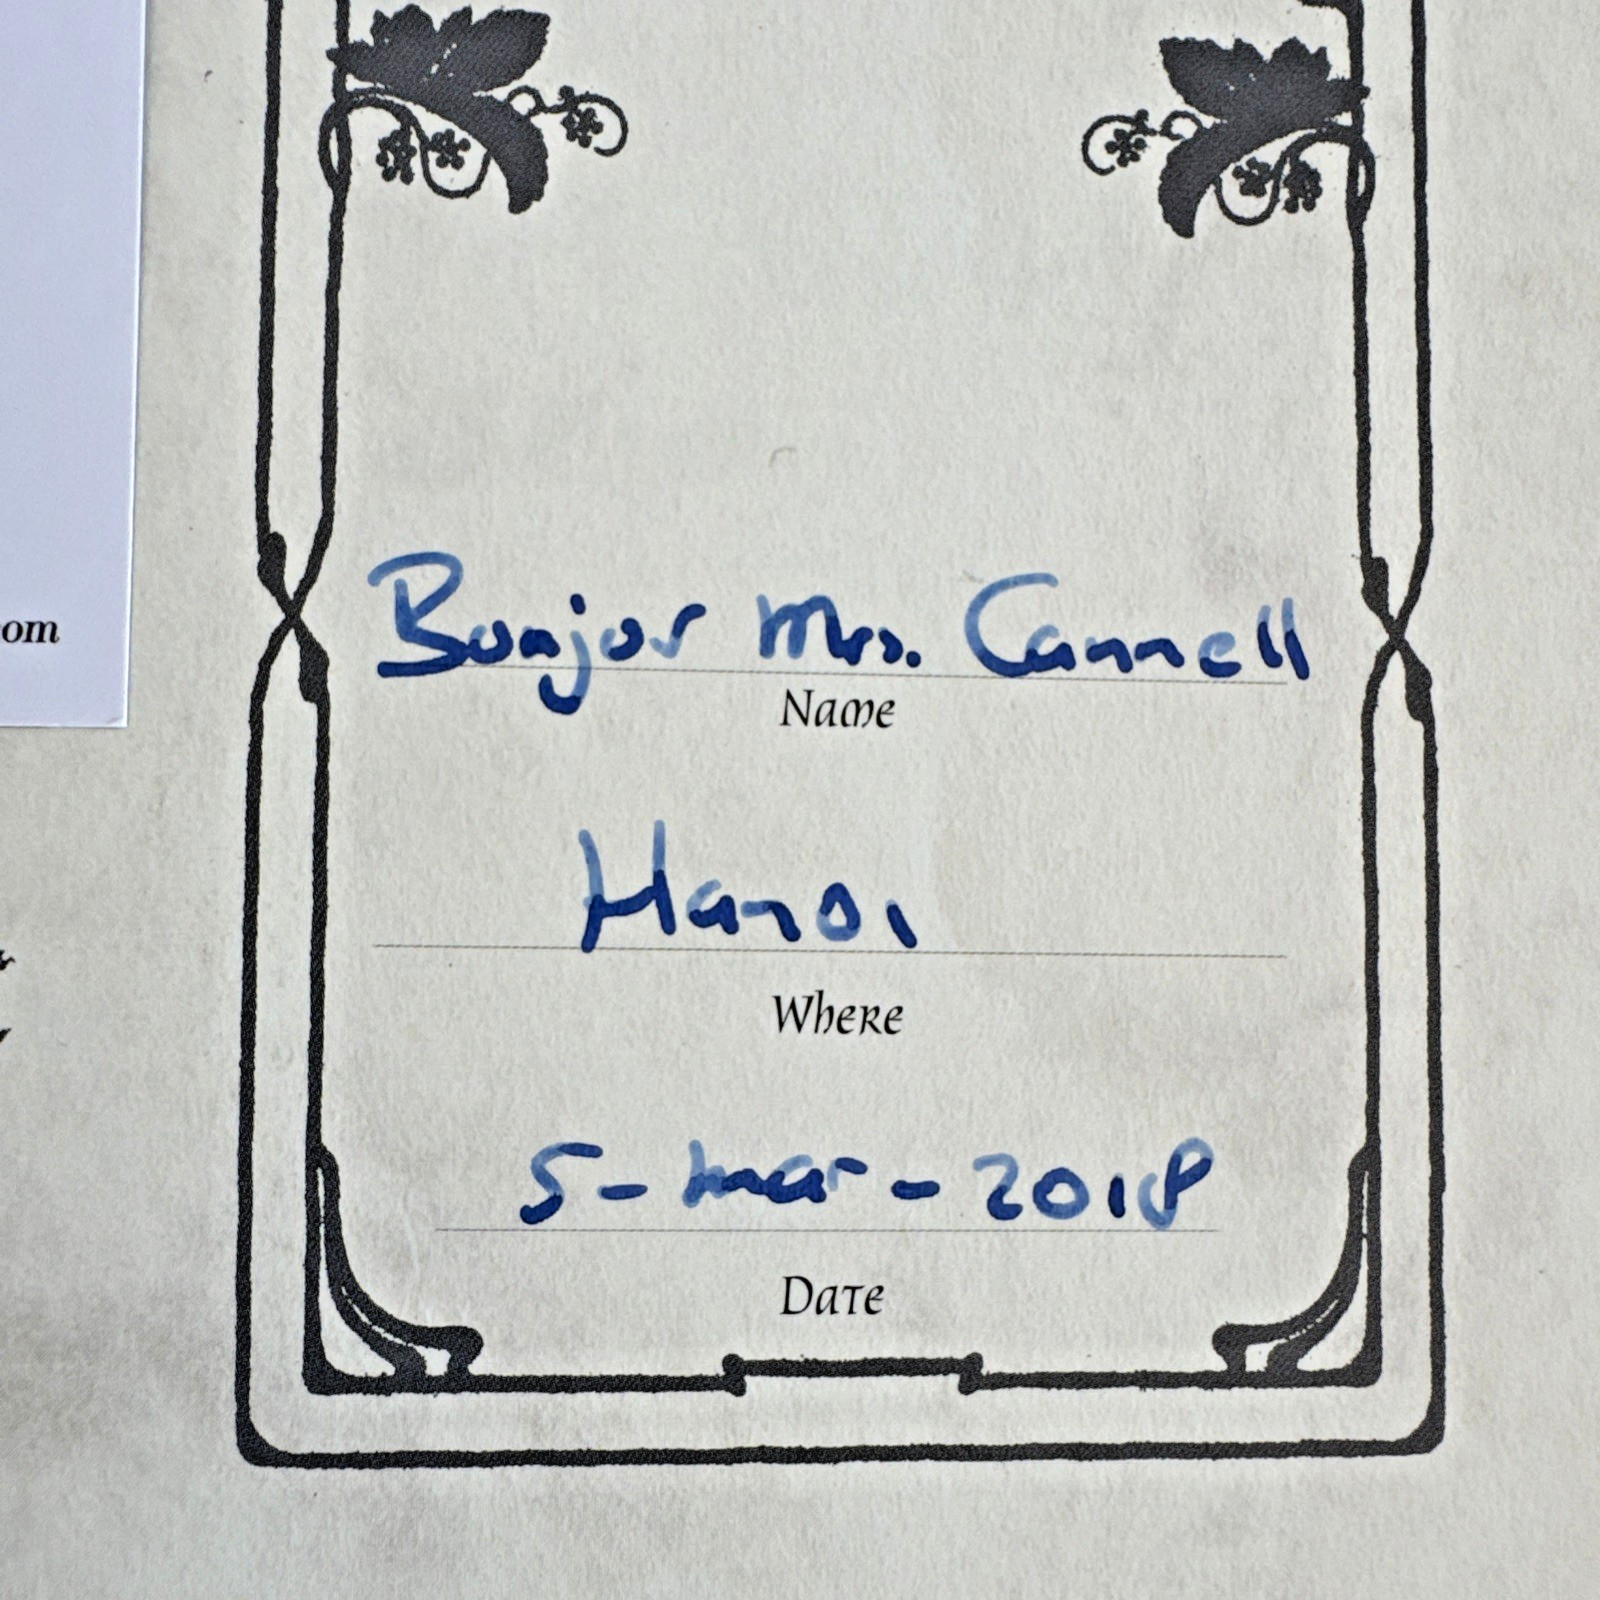 om
Bonjor Mrs. Cannell
Name
Hanoi
Where
5-mar-2018
Date